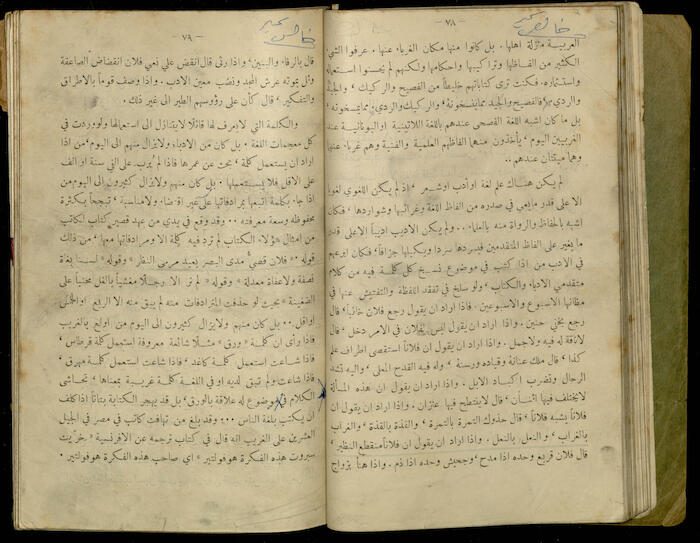 — ٧٨ —
العربية منزلة اهلها . بل كانوا منها مكان الغرباء عنها . عرفوا الشيء
الكثير من الفاظها وتراكيبها واحكامها ولكنهم لم يحسنوا استعماله
واستثماره . فكنت ترى كتاباتهم خليطاً من الفصيح والركيك ، والجيد
والردي ، فالفصيح والجيد مما ينسخونه ، والركيك والردي ، مما يمسخونه ،
بل ما كان اشبه اللغة الفصحى عندهم باللغة اللاتينية او اليونانية عند
الغربيين اليوم ، يأخذون منها الفاظهم العلمية والفنية وهم غرباء عنها
وهما ميتتان عندهم ..
لم يكن هناك علم لغة او ادب او شعر ، اذ لم يكن اللغوي لغوياً
الا على قدر ما يعي في صدره من الفاظ اللغة وغرائبها وشواردها ، فكان
اشبه بالحفاظ والرواة منه بالعلماء .. ولم يكن الاديب اديباً الا على قدر
ما يغير على الفاظ المتقدمين فيسردها سرداً ويكيلها جزافاً ، فكان اوعهم
في الادب من اذا كتب في موضوع نسخ كل كلمة فيه من كلام
متقدمي الادباء والكتاب ، ولو سلخ في تفقد اللفظة والتفتيش عنها في
مظانها الاسبوع والاسبوعين . فاذا اراد ان يقول رجع فلان خائباً ، قال
رجع بخفي حنين . واذا اراد ان يقول ليس لفلان في الامر دخل ، قال
لا ناقة له فيه ولا جمل . واذا اراد ان يقول ان فلاناً استقصى اطراف علم
كذا ، قال ملك عنانه وقياده ورسنه ، وله فيه القدح المعلى ، واليه تشد
الرحال وتضرب اكباد الابل . واذا اراد ان يقول ان هذه المسألة
لا يختلف فيها اثنان ، قال لا ينتطح فيها عنزان . واذا اراد ان يقول ان
فلاناً يشبه فلاناً ، قال حذوك التمرة بالتمرة ، والقذة بالقذة ، والغراب
بالغراب ، والنعل بالنعل . واذا اراد ان يقول ان فلاناً منقطع النظير ،
قال فلان قريع وحده اذا مدح ، وجحيش وحده اذا ذم . واذا هنأ بزواج
— ٧٩ —
قال بالرفاء والبنين ، واذا رثى قال انقض علي نعي فلان انقضاض الصاعقة
وثل بموته عرش المجد ونضب معين الادب . واذا وصف قوماً بالاطراق
والتفكير ، قال كأن على رؤوسهم الطير الى غير ذلك .
والكلمة التي لا تعرف لها قائلا لا يتنازل الى استعمالها ولو وردت في
كل معجمات اللغة . بل كان من الادباء ولا يزال منهم الى اليوم ، من اذا
اراد ان يستعمل كلمة ، بحث عن عمرها فاذا لم يُرب على الني سنة او الف
على الاقل فلا يستعملها . بل كان منهم ولا يزال كثيرون الى اليوم من
اذا جاء بكلمة اتبعها بمرادفاتها على غير اقتضاء ولا مناسبة ، تبجحاً بكثرة
محفوظه وسعة معرفته .. وقد وقع في يدي من عهد قصير كتاب لكاتب
من امثال هؤلاء الكتاب لم ترد فيه كلمة الا ومرادفاتها معها ، من ذلك
قوله « فلان قصي مدى البصر بعيد مرمى النظر » وقوله « لسنا بغاة
نصفة ولا عفاة معدلة » وقوله « لم نر الا رجلاً مغشياً بالغل محنياً على
الضغينة » بحيث لو حذفت المترادفات منه لم يبق منه الا الربع او الخمس
او اقل .. بل كان منهم ولا يزال كثيرون الى اليوم من اولع بالغريب
فاذا رأى ان كلمة « ورق » مثلاً شائعة معروفة استعمل كلمة قرطاس ،
فاذا شاعت استعمل كلمة كاغد ، فاذا شاعت استعمل كلمة مهرق ،
فاذا شاعت ولم تبق لديه او في اللغة كلمة غريبة بمعناها ، تحاشى
الكلام في موضوع له علاقة بالورق ، بل قد يهجر الكتابة بتاتاً اذا كلف
ان يكتب بلغة الناس ... وقد بلغ من تهافت كاتب في مصر في الجيل
العشرين على الغريب انه قال في كتاب ترجمه عن الافرنسية « خرّيت
سبروت هذه الفكرة هو فولتير » اي صاحب هذه الفكرة هو فولتير .